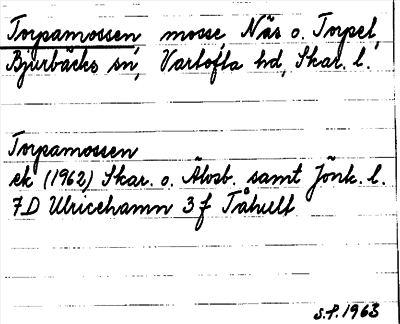 Torpamossen, mosse, Näs o. Torpet,
Bjurbäcks sn, Vartofta hd, Skar. l.
Torpamossen
ek (1962) Skar. o. Älvsb. samt Jönk. l.
7D Ulricehamn 3 f Tåhult
S.P. 1963